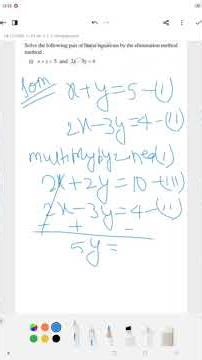 Solve the following pair of linear equations by the elimination method
method :
(i) x + y = 5 and 2x - 3y = 4
Som
x + y = 5 - (i)
2x - 3y = 4 - (ii)
multiply by 2 in eq (i)
2x + 2y = 10 - (iii)
2x - 3y = 4 - (ii)
- + -
5y =